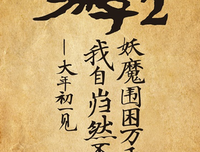 2
妖魔围困万
我自岿然不
—大年初一见